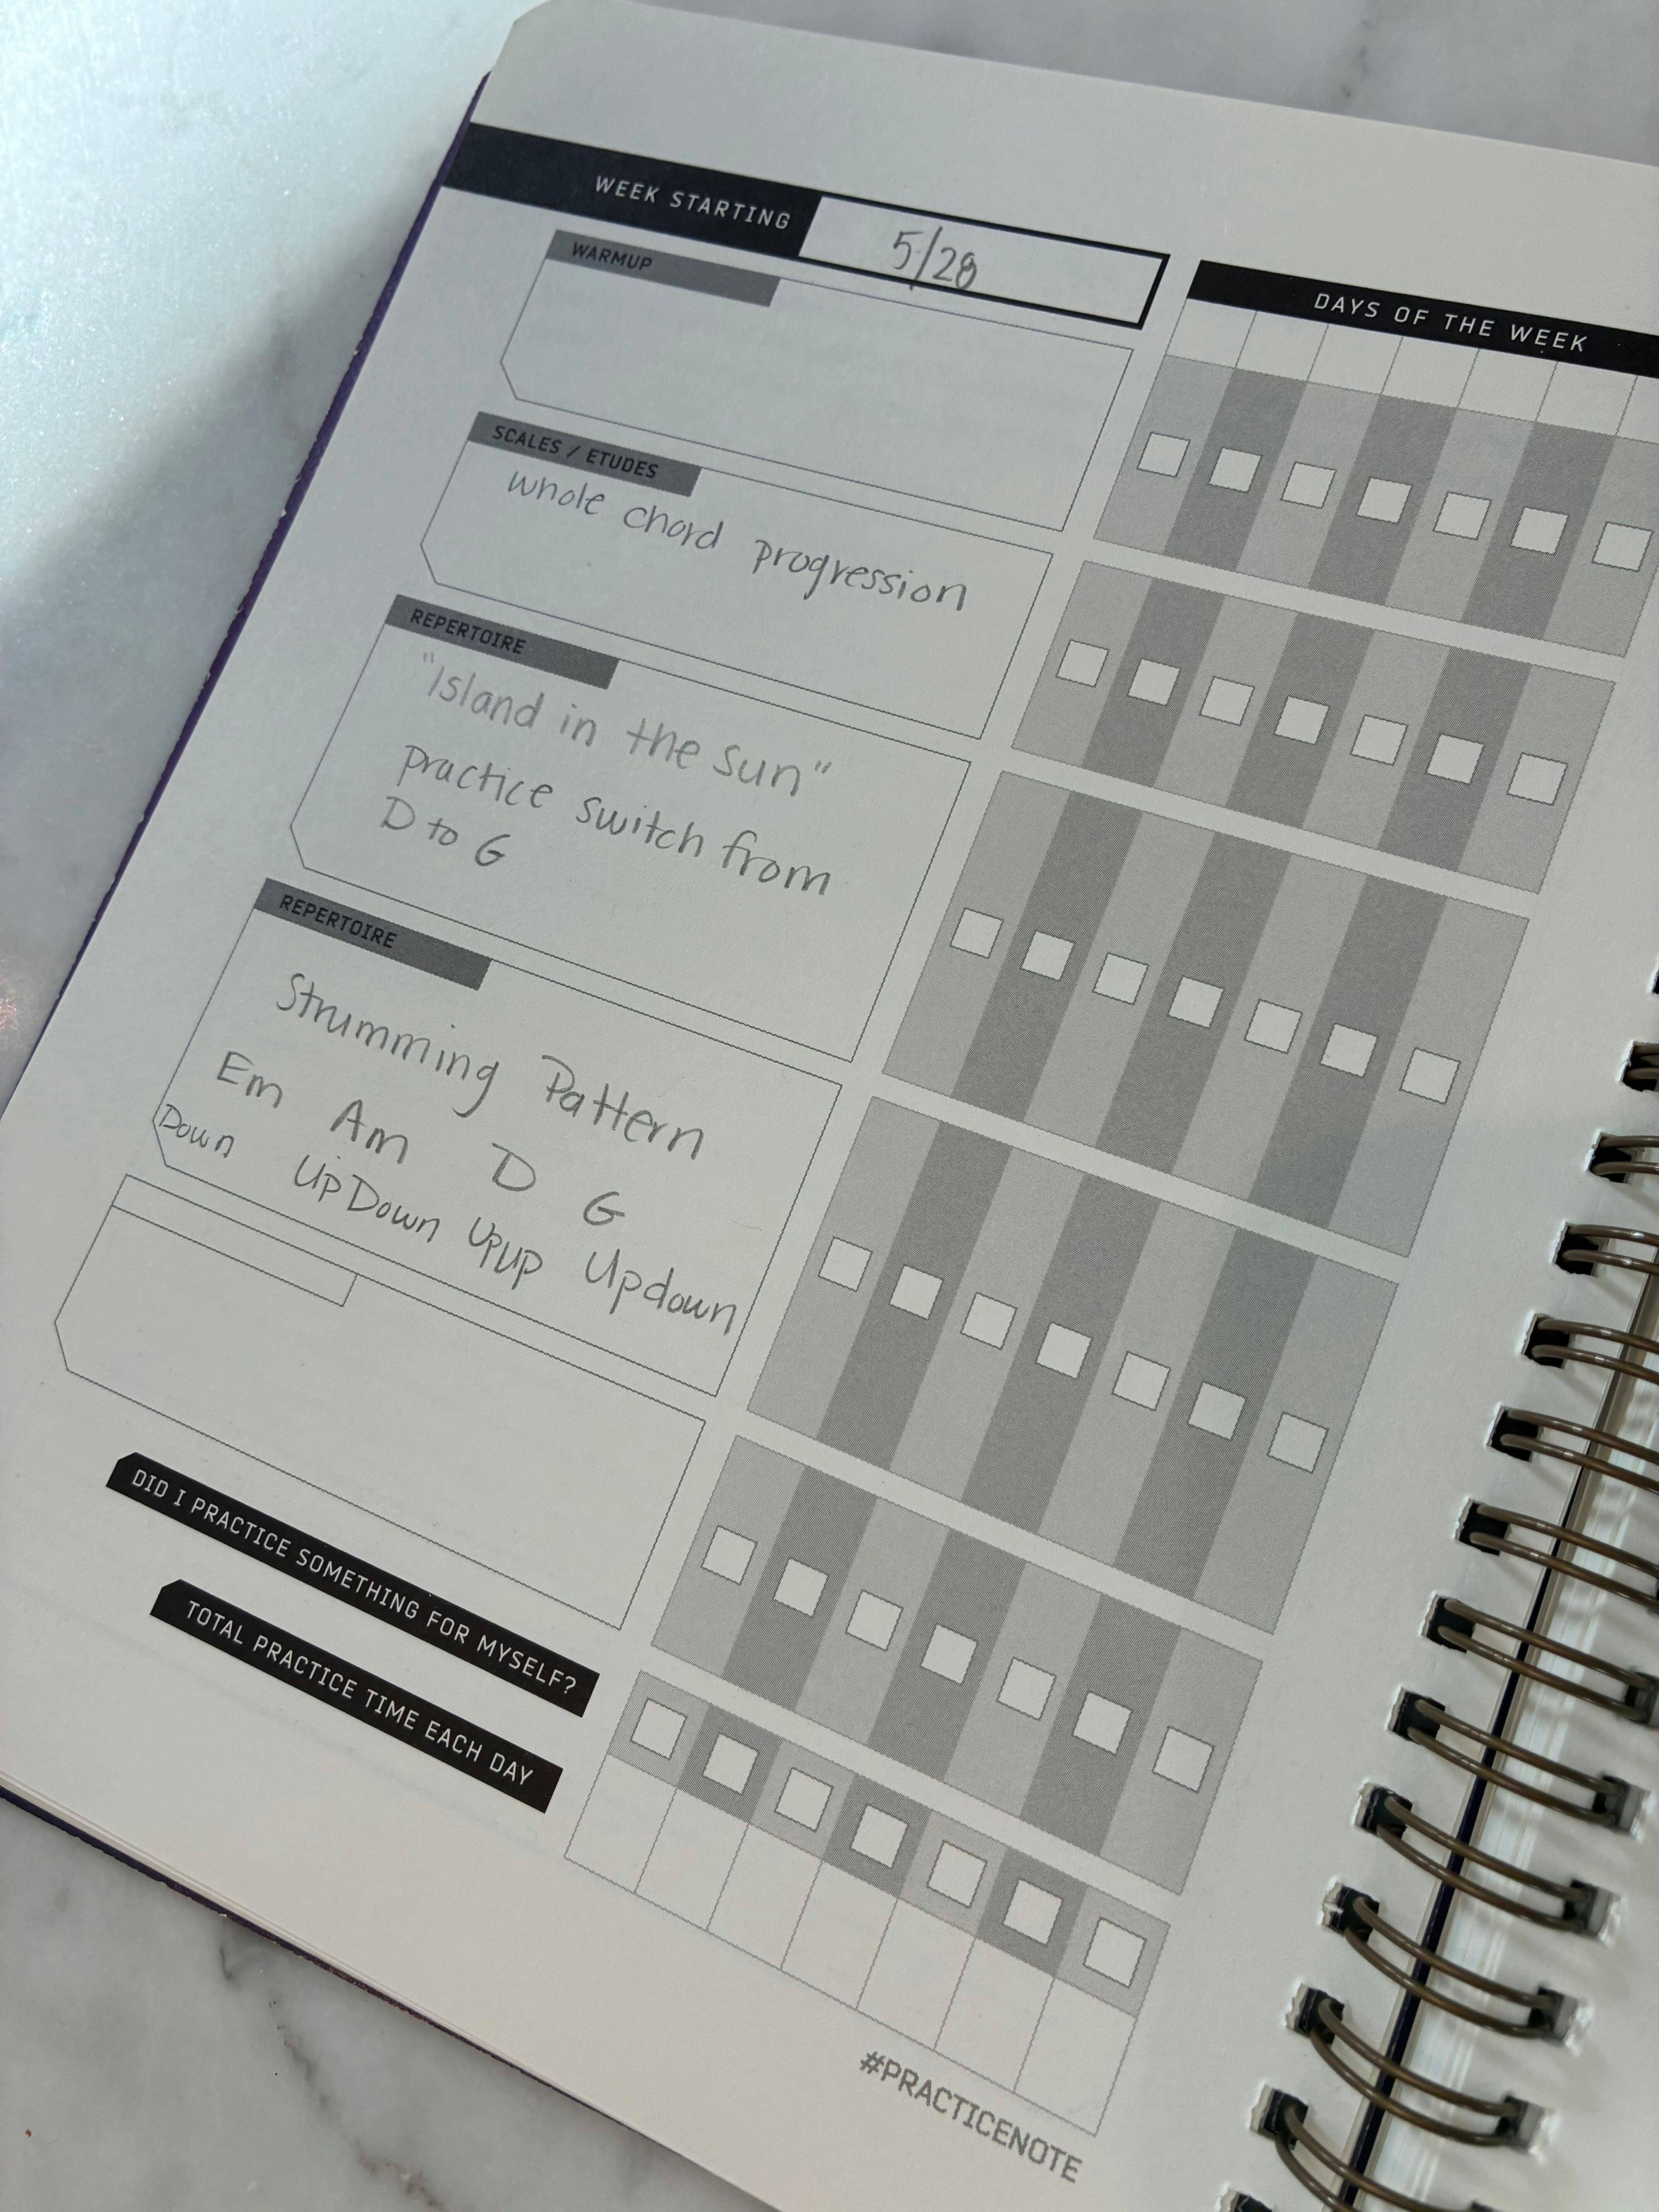 WEEK STARTING 5/28
DAYS OF THE WEEK
WARMUP
SCALES / ETUDES
whole chord progression
REPERTOIRE
"Island in the Sun"
practice switch from
D to G
REPERTOIRE
Strumming Pattern
Em Am D G
Down UpDown UpUp Updown
DID I PRACTICE SOMETHING FOR MYSELF?
TOTAL PRACTICE TIME EACH DAY
#PRACTICENOTE